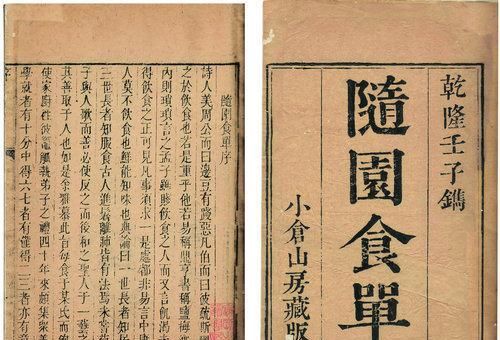 乾隆壬子鐫
隨園食單
小倉山房藏版
隨園食單序
詩人美周公而曰籩豆有踐惡凡伯而曰彼疏斯
之於飲食也若是重乎他若易稱鼎亨書稱鹽梅
內則瑣瑣言之孟子雖賤飲食之人而又言飢渴
得飲食之正可見凡事須求一是處都非易言中庸
人莫不飲食也鮮能知味也典論曰一世長者知居
三世長者知服食古人進鬐離肺皆有法焉未嘗
子與人歌而善必使反之而後和之聖人于一藝之
其善取于人也如是余雅慕此旨每食于某氏而飽
使家廚往彼竈觚執弟子之禮四十年來頗集衆美
學就者有十分中得六七者有僅得二三者亦有竟